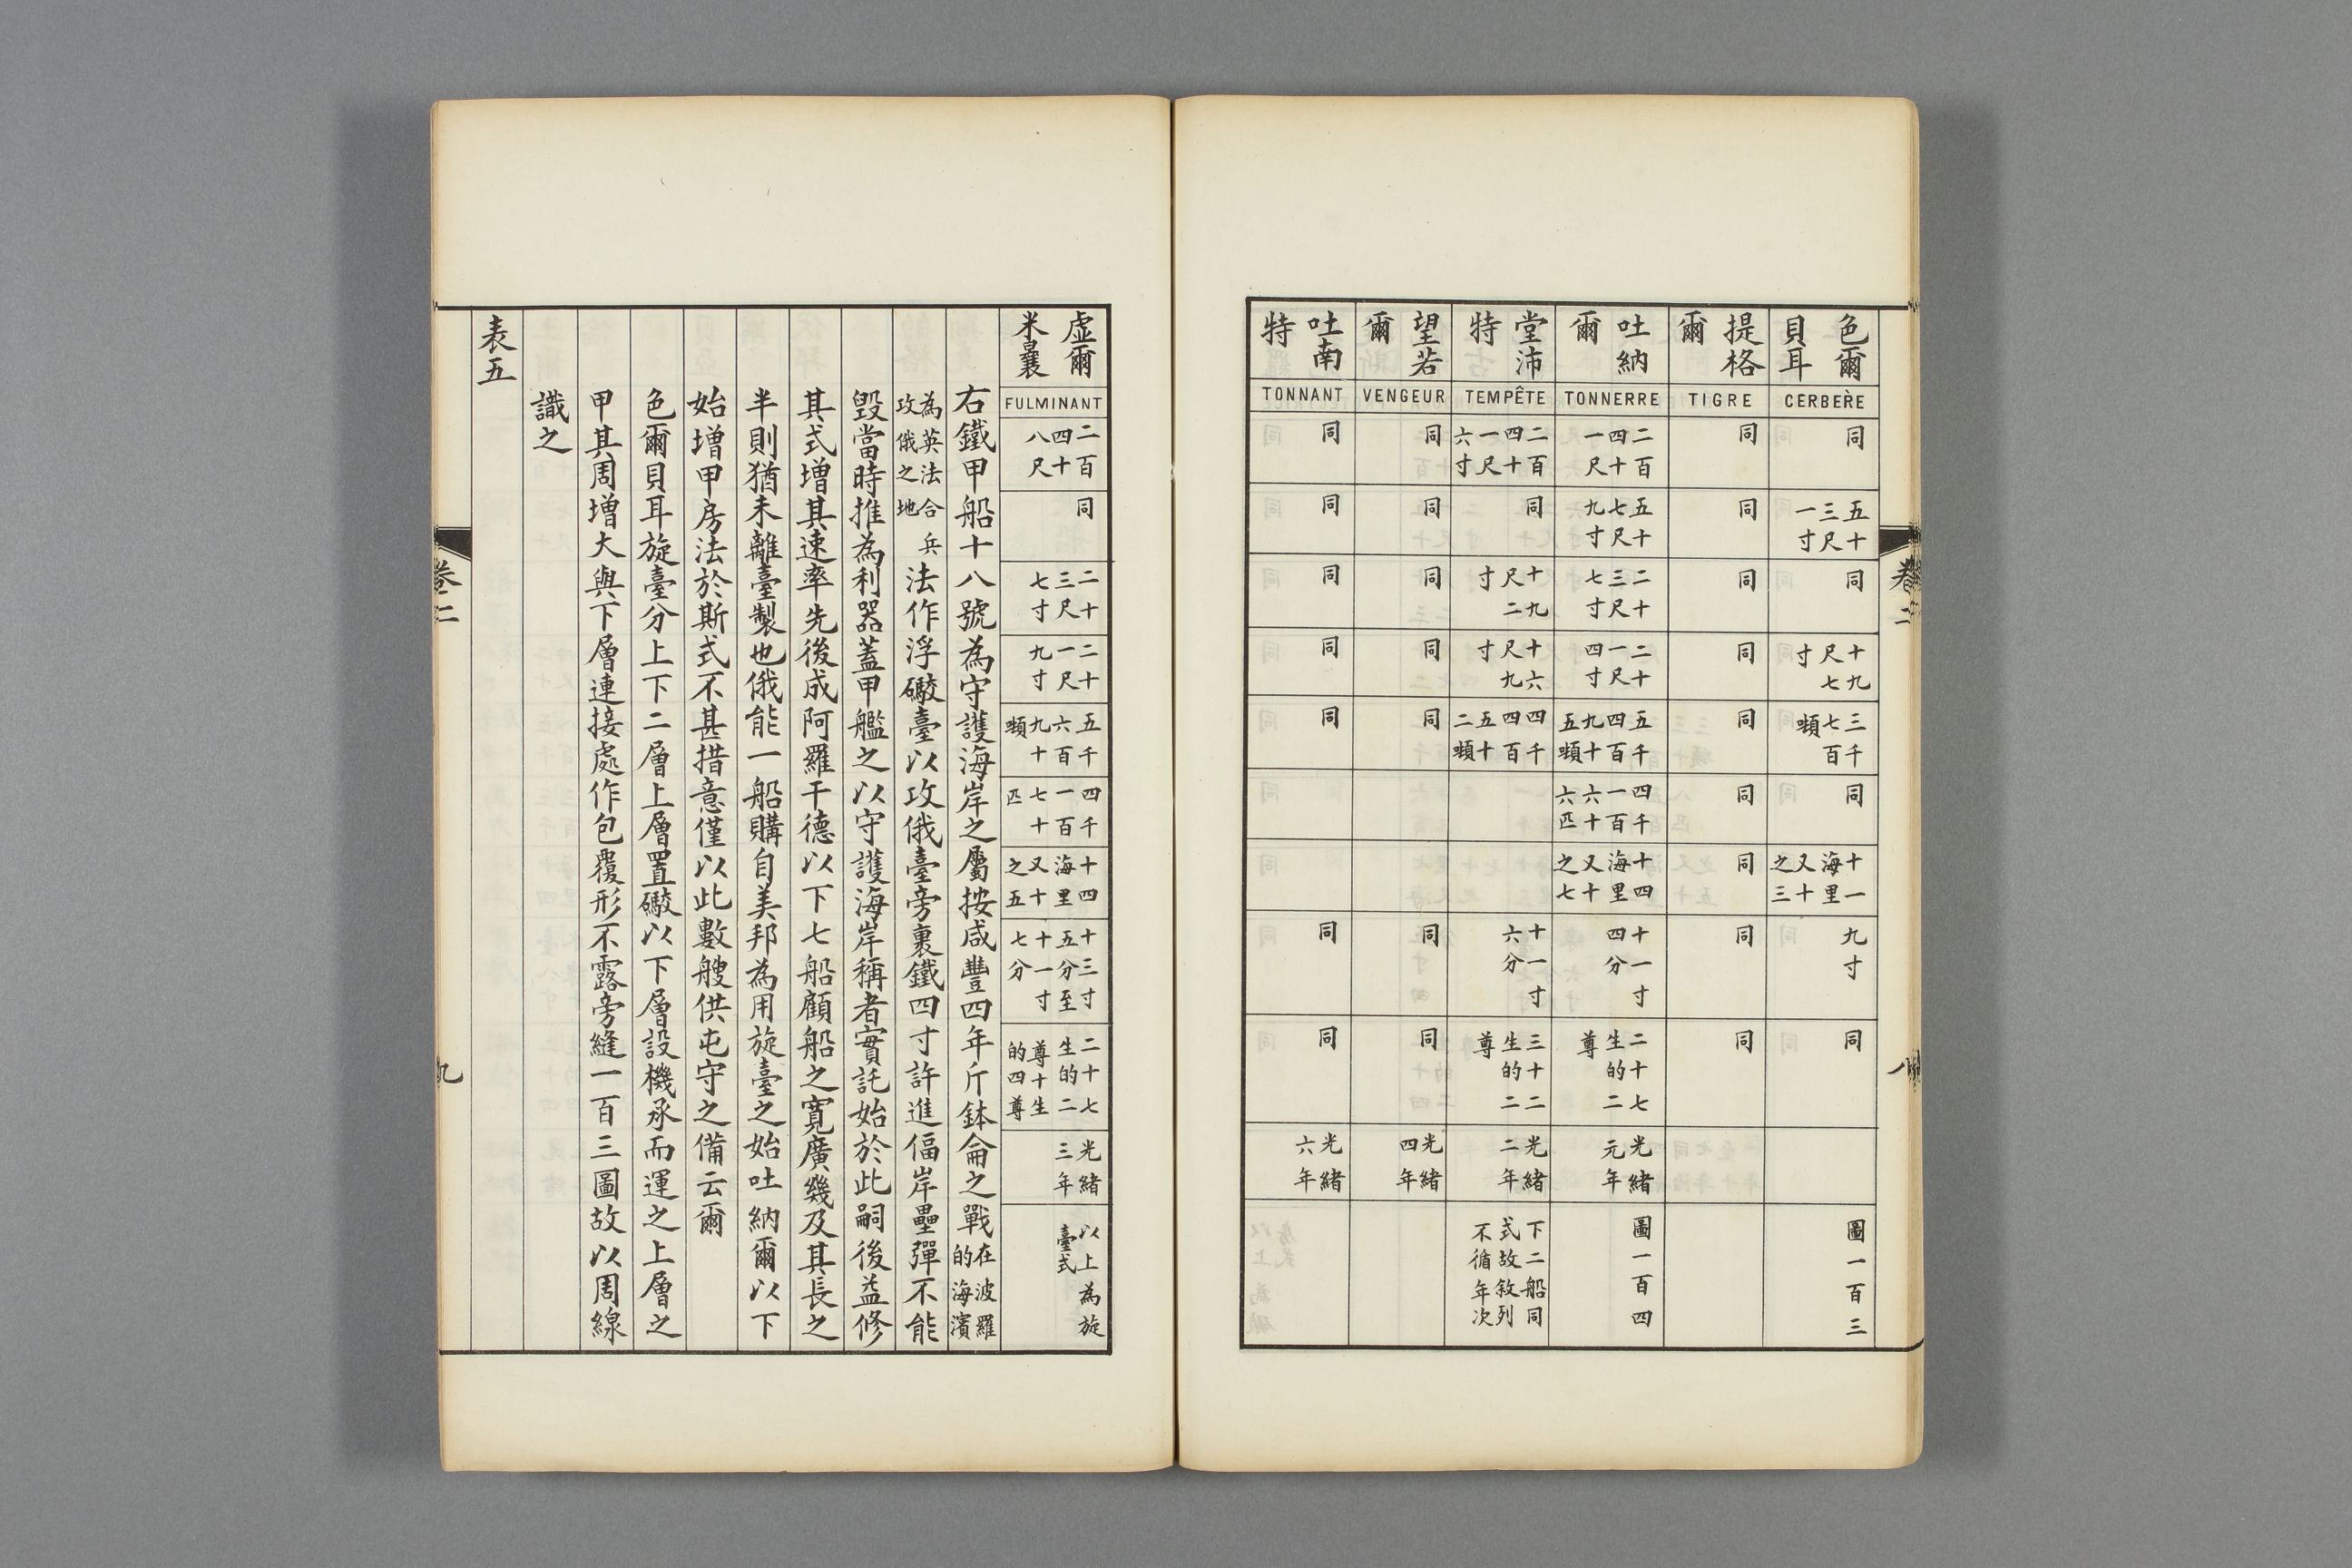 色爾貝耳
CERBERÈ
同
五十三尺一寸
同
十九尺七寸
三千七百噸
同
十一海里又十之三
九寸
同
圖一百三
提格爾
TIGRE
同
同
同
同
同
同
同
同
同
吐納爾
TONNERRE
二百四十一尺
五十七尺九寸
二十三尺七寸
二十一尺四寸
五千四百九十五噸
四千一百六十六匹
十四海里又十之七
十一寸四分
二十七生的二尊
光緒元年
圖一百四
堂沛特
TEMPÊTE
二百四十一尺六寸
同
十九尺二寸
十六尺九寸
四千四百五十二噸
十一寸六分
三十二生的二尊
光緒二年
下二船同式故敘列不循年次
望若爾
VENGEUR
同
同
同
同
同
同
同
光緒四年
吐南特
TONNANT
同
同
同
同
同
同
同
光緒六年
卷二
八
虛爾米曩
FULMINANT
二百四十八尺
同
二十三尺七寸
二十一尺九寸
五千六百九十噸
四千一百七十匹
十四海里又十之五
十三寸五分至十一寸七分
二十七生的二尊十生的四尊
光緒三年
以上為旋臺式
右鐵甲船十八號為守護海岸之屬按咸豐四年斤鉢侖之戰在波羅的海濱
為英法合兵攻俄之地法作浮礮臺以攻俄臺旁裹鐵四寸許進偪岸壘彈不能
毀當時推為利器蓋甲艦之以守護海岸稱者實託始於此嗣後益修
其式增其速率先後成阿羅干德以下七船顧船之寬廣幾及其長之
半則猶未離臺製也俄能一船購自美邦為用旋臺之始吐納爾以下
始增甲房法於斯式不甚措意僅以此數艘供屯守之備云爾
色爾貝耳旋臺分上下二層上層置礮以下層設機承而運之上層之
甲其周增大與下層連接處作包覆形不露旁縫一百三圖故以周線
識之
表五
卷二
九